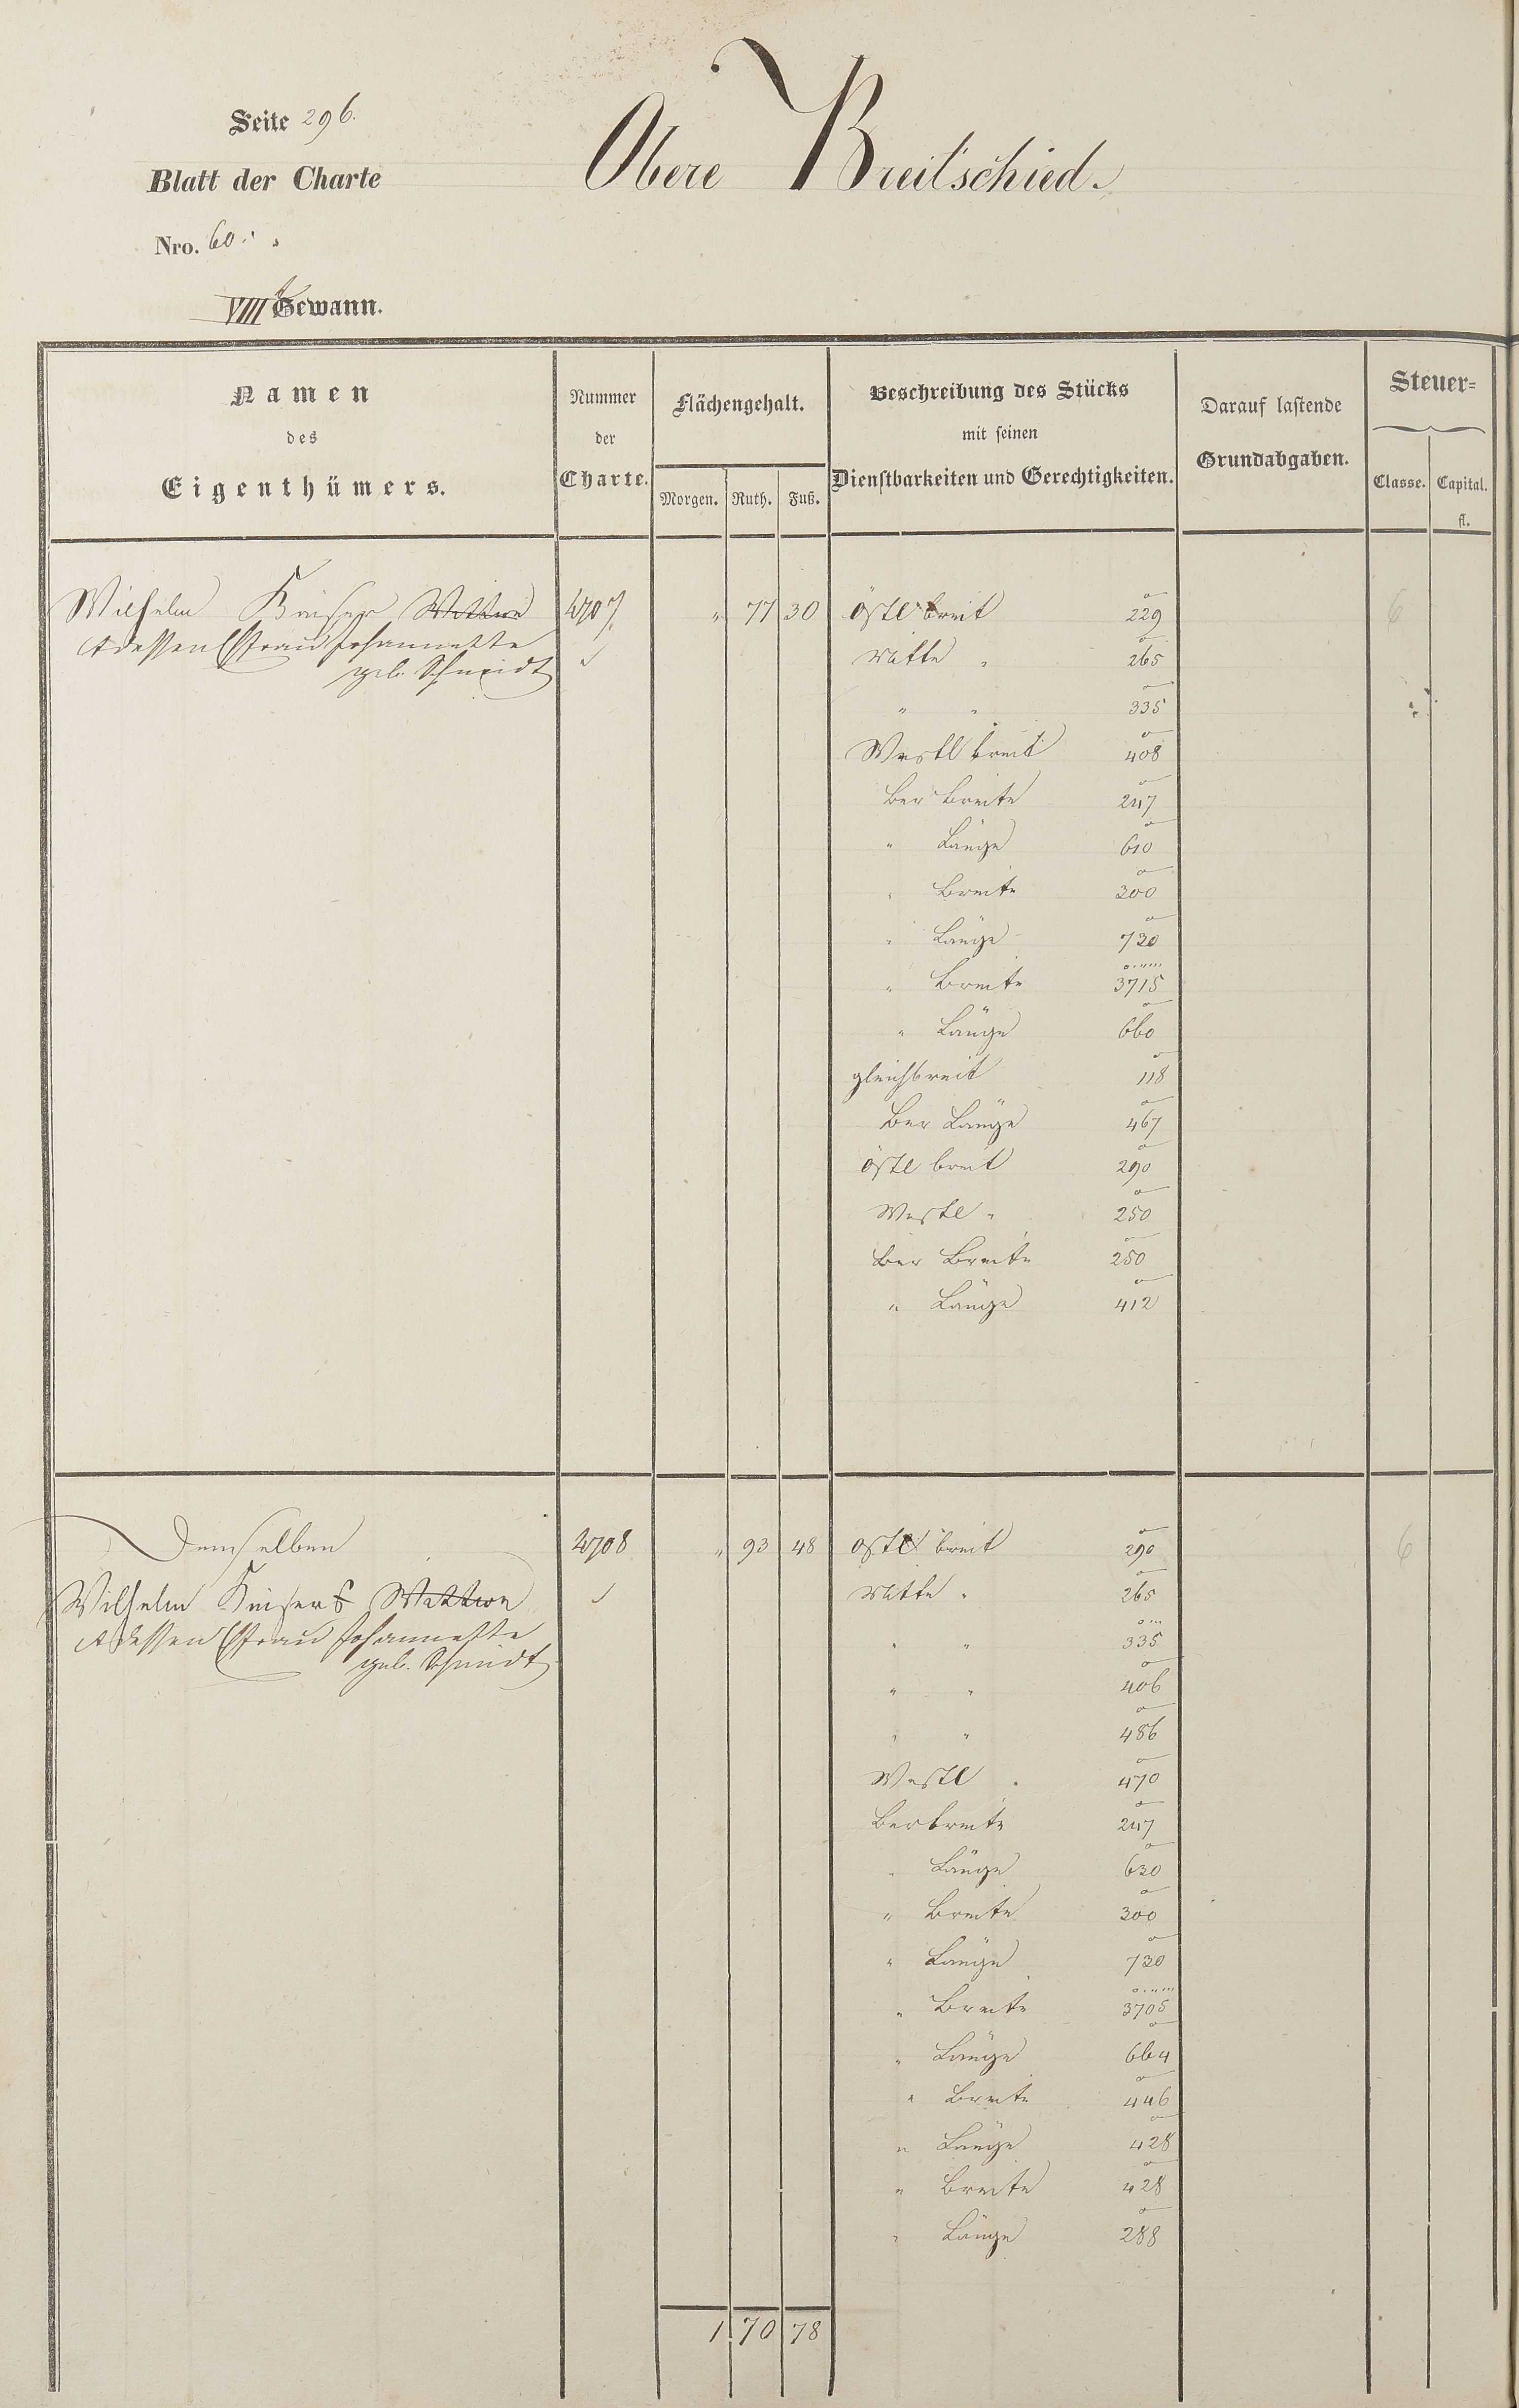 Seite 296.
Blatt der Charte
Nro. 60.
VIIIt Gewann.
Obere Breitschied.
Namen
des
Eigenthümers.
Nummer
der
Charte.
Flächengehalt.
Morgen. Ruth. Fuß.
Beschreibung des Stücks
mit seinen
Dienstbarkeiten und Gerechtigkeiten.
Darauf lastende
Grundabgaben.
Steuer=
Classe. Capital.
fl.
Wilhelm Kaiser Wittwe 4707 " 77 30 östl breit 229 6
& dessen Ehfrau Johannette
geb. Schmidt
Mitte " 265
" " 335
Westl breit 408
Ber Breite 247
" Länge 610
" Breite 300
" Länge 720
" Breite 3715
" Länge 660
gleichbreit 118
Ber Länge 467
östl breit 290
Westl " 250
Ber Breite 250
" Länge 412
Demselben 4708 " 93 48 östl breit 290 6
Wilhelm Kaisers Wittwe
& dessen Ehfrau Johannette
geb. Schmidt
Mitte " 265
" " 335
" " 406
" " 486
Westl " 470
Ber breite 247
" Länge 630
" Breite 300
" Länge 720
" Breite 3705
" Länge 664
" Breite 446
" Länge 428
" Breite 428
" Länge 288
1 70 78